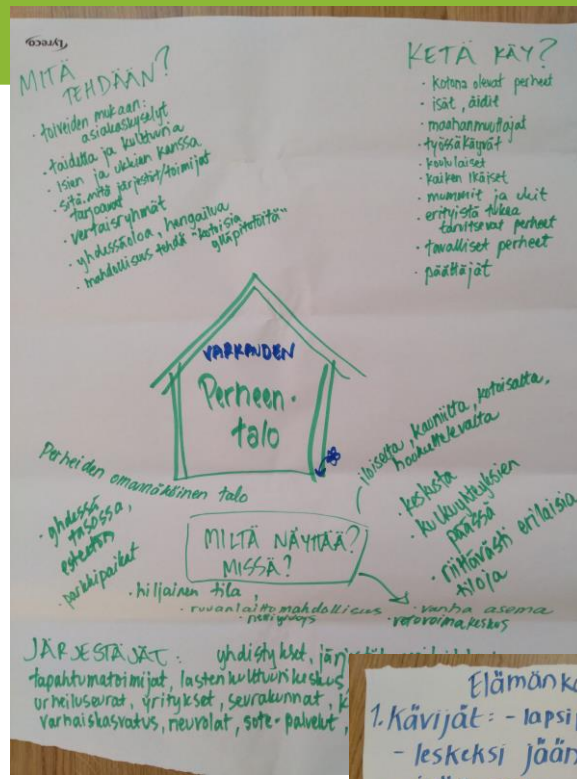 Lyreco
MITÄ
TEHDÄÄN?
· toiveiden mukaan:
asiakaskyselyt
· taidetta ja kulttuuria
· isien ja ukkien kanssa
· sitä mitä järjestöt/toimijat
tarjoavat
· vertaisryhmät
· yhdessäoloa, hengailua
· mahdollisuus tehdä "kotoisia
ylläpitotöitä"
KETÄ KÄY?
· kotona olevat perheet
· isät, äidit
· maahanmuuttajat
· työssäkäyvät
· koululaiset
· kaiken ikäiset
· mummit ja ukit
· erityistä tukea
tarvitsevat perheet
· tavalliset perheet
· päättäjät
VARKAUDEN
Perheen-
talo
Perheiden omannäköinen talo
· yhdessä
tasossa,
esteetön
· parkkipaikat
MILTÄ NÄYTTÄÄ?
MISSÄ?
iloiselta, kauniilta, kotoisalta,
houkuttelevalta
· keskusta
· kulkuyhteyksien
päässä
· riittävästi erilaisia
tiloja
· hiljainen tila,
· ruuanlaittomahdollisuus
· vanha asema
· vetovoimakeskus
JÄRJESTÄJÄT: yhdistykset,
tapahtumatoimijat, lasten kulttuurikeskus,
urheiluseurat, yritykset, seurakunnat,
varhaiskasvatus, neuvolat, sote-palvelut,
1. Kävijät: -
- leskeksi